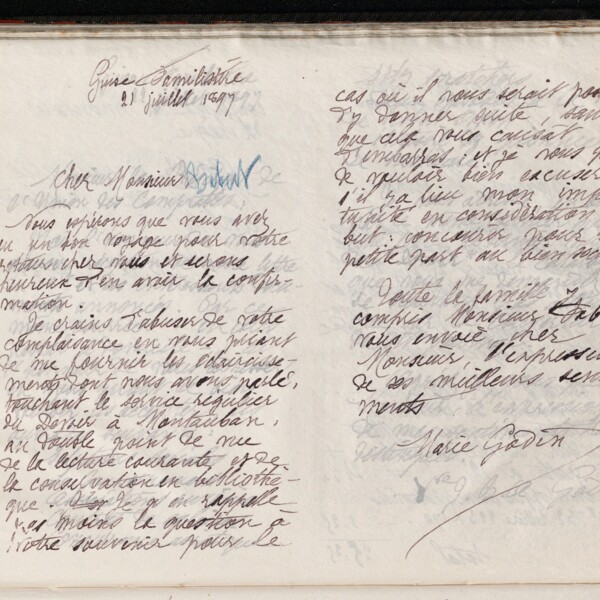 Guise Familistère
21 juillet 1897
Cher Monsieur
Nous espérons que vous avez
eu un bon voyage pour votre
retour chez vous et serons
heureux d'en avoir la confir-
mation.
Je crains d'abuser de votre
complaisance en vous priant
de me fournir les éclaircisse-
ments dont nous avons parlé,
touchant le service régulier
du Devoir à Montauban,
au double point de vue
de la lecture courante et de
la conservation en bibliothè-
que. Je n'en rappelle
moins la question à
votre souvenir pour le
cas où il vous serait
d'y donner suite, sans
que cela vous causât
d'embarras ; et je vous
de vouloir bien excuser
s'il y a lieu mon
tunité en considération
but : concourir pour
petite part au bien
Toute la famille y
compris Monsieur
vous envoie cher
Monsieur, l'expression
de ses meilleurs senti-
ments
Marie Godin